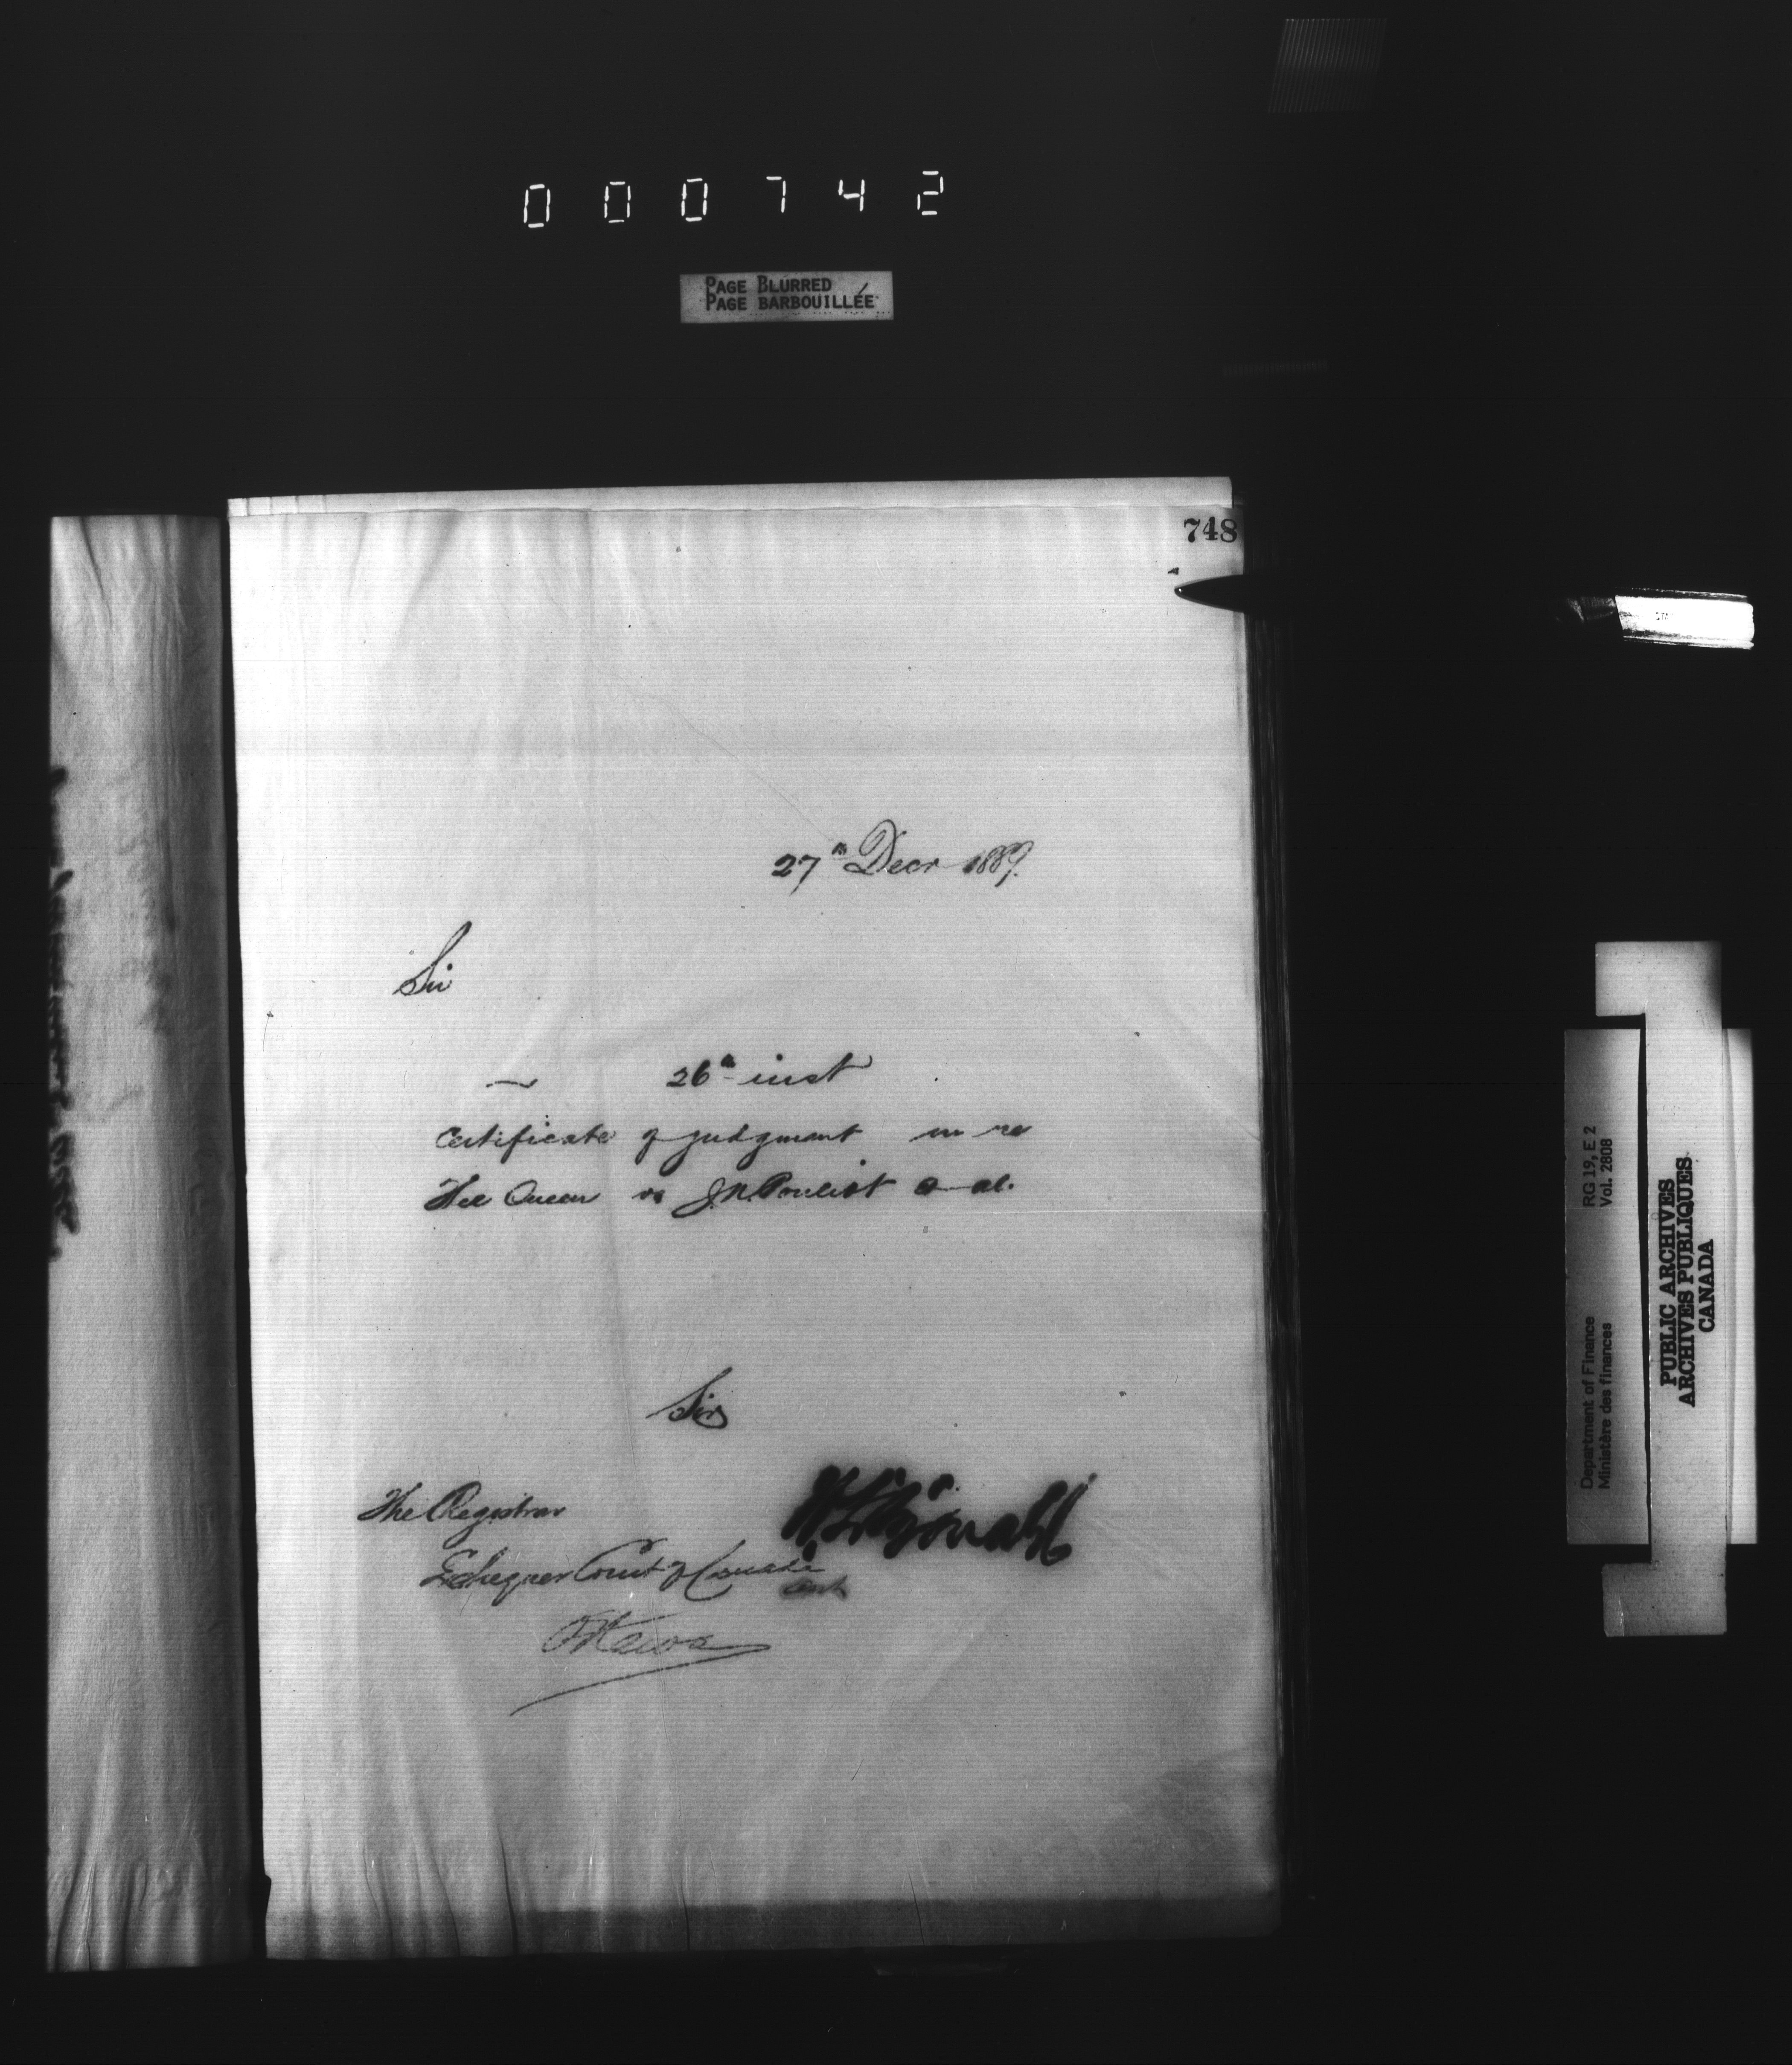 000742
PAGE BLURRED
PAGE BARBOUILLÉE
748
27th Decr 1889.
Sir
26th inst
Certificate of judgment in re
The Queen vs J. N. Pouliot & al.
Sir
The Registrar
Exchequer Court of Canada
Ottawa
RG 19, E 2
Vol. 2808
Department of Finance
Ministère des finances
PUBLIC ARCHIVES
ARCHIVES PUBLIQUES
CANADA